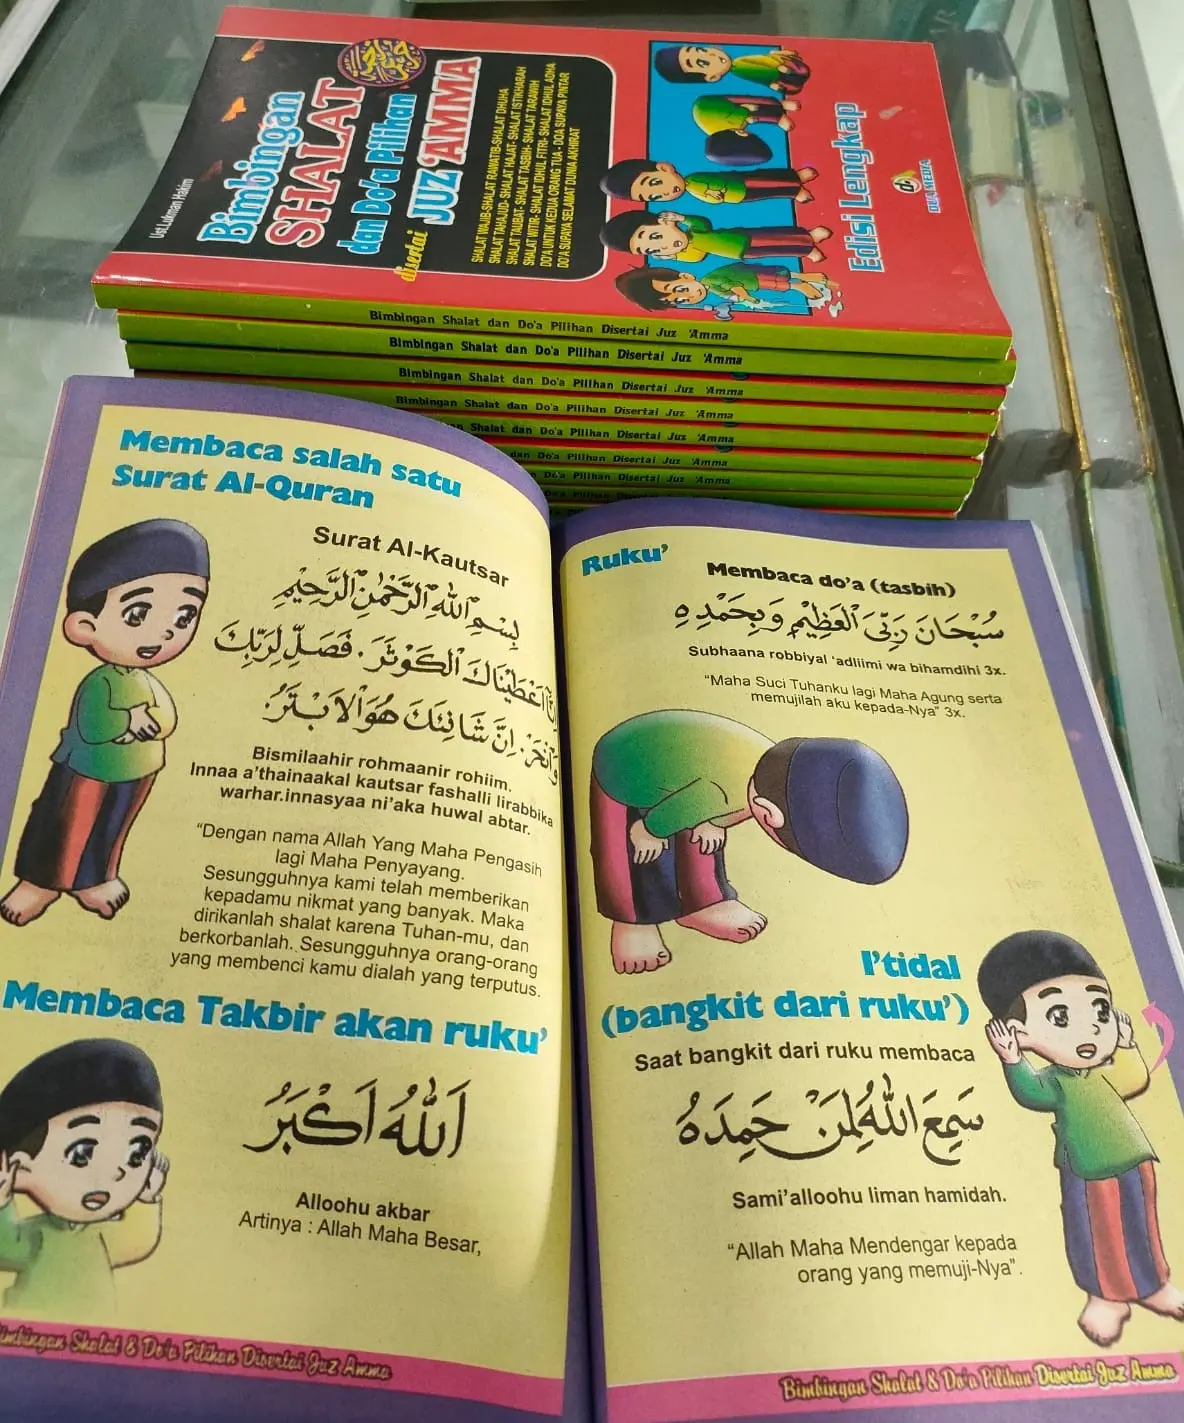 Ust.Lukman Hakim
Bimbingan
SHALAT
dan Do'a Pilihan
disertai JUZ 'AMMA
SHALAT WAJIB-SHALAT RAWATIB-SHALAT DHUHA
SHALAT TAHAJUD- SHALAT HAJAT- SHALAT ISTIKHARAH
SHALAT TAUBAT- SHALAT TASBIH- SHALAT TARAWIH
SHALAT WITIR- SHALAT IDHUL FITRI- SHALAT IDHUL ADHA
DO'A UNTUK KEDUA ORANG TUA - DOA SUPAYA PINTAR
DO'A SUPAYA SELAMAT DUNIA AKHIRAT
Edisi Lengkap
DUA MEDIA
Bimbingan Shalat dan Do'a Pilihan Disertai Juz 'Amma
Bimbingan Shalat dan Do'a Pilihan Disertai Juz 'Amma
Bimbingan Shalat dan Do'a Pilihan Disertai Juz 'Amma
Bimbingan Shalat dan Do'a Pilihan Disertai Juz 'Amma
Shalat dan Do'a Pilihan Disertai Juz 'Amma
dan Do'a Pilihan Disertai Juz 'Amma
Do'a Pilihan Disertai Juz 'Amma
Membaca salah satu
Surat Al-Quran
Surat Al-Kautsar
بِسْمِ اللهِ الرَّحْمٰنِ الرَّحِيْمِ
اِنَّا اَعْطَيْنَاكَ الْكَوْثَرَ. فَصَلِّ لِرَبِّكَ
وَانْحَرْ. اِنَّ شَانِئَكَ هُوَ الْاَبْتَرُ
Bismilaahir rohmaanir rohiim.
Innaa a'thainaakal kautsar fashalli lirabbika
warhar.innasyaa ni'aka huwal abtar.
"Dengan nama Allah Yang Maha Pengasih
lagi Maha Penyayang.
Sesungguhnya kami telah memberikan
kepadamu nikmat yang banyak. Maka
dirikanlah shalat karena Tuhan-mu, dan
berkorbanlah. Sesungguhnya orang-orang
yang membenci kamu dialah yang terputus.
Membaca Takbir akan ruku'
اَللهُ اَكْبَرُ
Alloohu akbar
Artinya : Allah Maha Besar,
Bimbingan Shalat & Do'a Pilihan Disertai Juz Amma
Ruku'
Membaca do'a (tasbih)
سُبْحَانَ رَبِّيَ الْعَظِيْمِ وَبِحَمْدِهِ
Subhaana robbiyal 'adliimi wa bihamdihi 3x.
"Maha Suci Tuhanku lagi Maha Agung serta
memujilah aku kepada-Nya" 3x.
I'tidal
(bangkit dari ruku')
Saat bangkit dari ruku membaca
سَمِعَ اللهُ لِمَنْ حَمِدَهُ
Sami'alloohu liman hamidah.
"Allah Maha Mendengar kepada
orang yang memuji-Nya".
Bimbingan Shalat & Do'a Pilihan Disertai Juz Amma